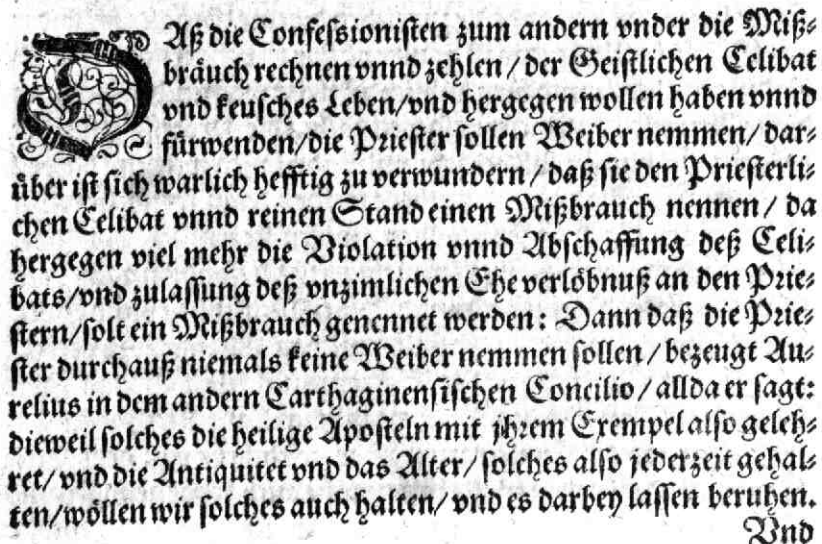 DAß die Confessionisten zum andern vnder die Miß⸗
bräuch rechnen vnnd zehlen / der Geistlichen Celibat
vnd keusches Leben/vnd hergegen wollen haben vnnd
fürwenden/die Priester sollen Weiber nemmen/ dar⸗
über ist sich warlich hefftig zu verwundern / daß sie den Priesterli⸗
chen Celibat vnnd reinen Stand einen Mißbrauch nennen / da
hergegen viel mehr die Violation vnnd Abschaffung deß Celi⸗
bats/vnd zulassung deß vnzimlichen Ehe verlöbnuß an den Prie⸗
stern/solt ein Mißbrauch genennet werden: Dann daß die Prie⸗
ster durchauß niemals keine Weiber nemmen sollen / bezeugt Au⸗
relius in dem andern Carthaginensischen Concilio / allda er sagt:
dieweil solches die heilige Aposteln mit jhrem Exempel also geleh⸗
ret/ vnd die Antiquitet vnd das Alter/ solches also jederzeit gehal⸗
ten/wöllen wir solches auch halten/ vnd es darbey lassen beruhen.
Vnd